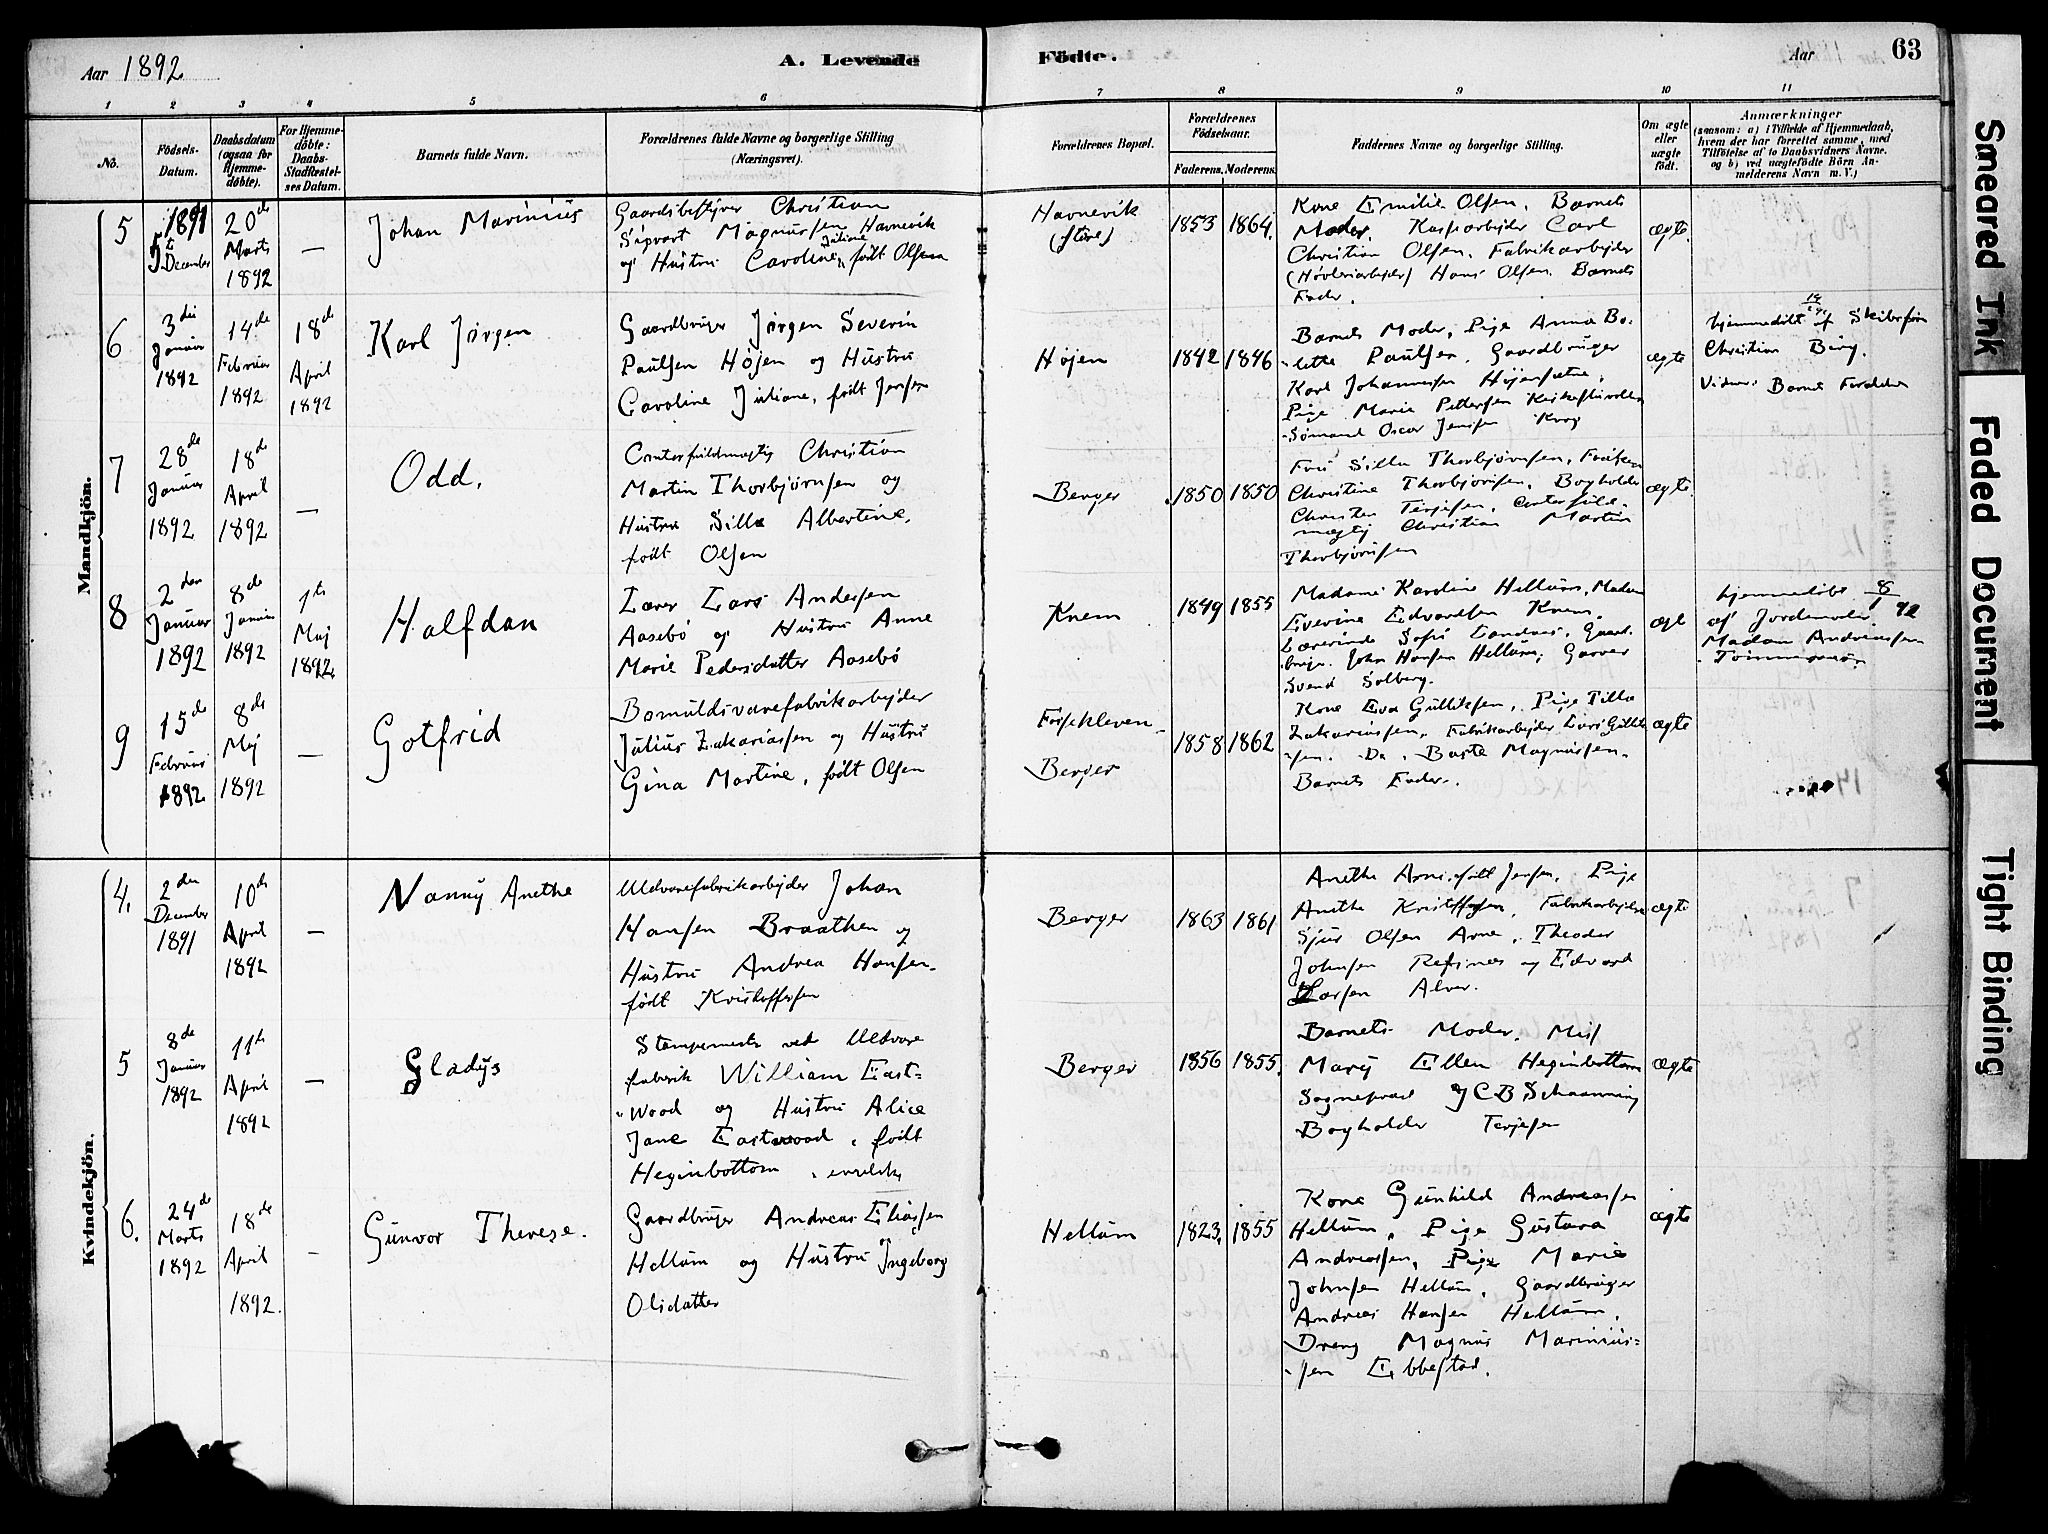 Aar 1892
A. Levende
Födte.
Aar
63
1 2 3 4 5 6 7 8 9 10 11
No.
Födsels-Datum.
Daabsdatum (ogsaa for Hjemme-döbte).
For Hjemme-döbte: Daabs-Stadfæstel-ses Datum.
Barnets fulde Navn.
Forældrenes fulde Navne og borgerlige Stilling (Næringsvei).
Forældrenes Bopæl.
Forældrenes Födselsaar.
Faderens. Moderens.
Faddernes Navne og borgerlige Stilling.
Om ægte eller uægte födt.
Anmærkninger
(saasom: a) i Tilfælde af Hjemmedaab, hvem der har forrettet samme, med Tilföielse af to Daabsvidners Navne. og b) ved uægtefödte Börn An-melderens Navn m. V.)
Mandkjön.
5
1891
5te December
20de Marts 1892
—
Johan Marinius
Gaardsbestyrer Christian
Sigvart Magnussen Havnevik
og Hustru Caroline Juliane, født Olsen
Havnevik
(store)
1853 1864.
Kone Emilie Olsen, Barnets
Moder, Carl
Christian Olsen, Fabrikarbejder
(Høvleriarbejder) Hans Olsen, Barnets
Fader.
ægte.
6
3die Januar 1892
14de Februar 1892
18de April 1892
Karl Jørgen
Gaardbruger Jørgen Severin
Paulsen Højen og Hustru
Caroline Juliane, født Jensen
Højen
1842 1846
Barnets Moder, Pige Anna Bo-
lette Paulsen, Gaardbruger
Karl Johannessen
Pige Marie Pettersen
Sømand Oscar Jensen Krog
ægte
hjemmedøbt af
Christian Bing.
Vidner: Barnets Forældre
7
28de Januar 1892
18de April 1892
—
Odd.
Contorfuldmægtig Christian
Martin Thorbjørnsen og
Hustru Silla Albertine,
født Olsen
Berger
1850 1850
Fru Silla Thorbjørnsen, Frøken
Christine Thorbjørnsen, Bogholder
Christen Terjesen, Contorfuld-
mægtig Christian Martin
Thorbjørnsen
ægte.
8
2den Januar 1892
8de Januar 1892
1ste Maj 1892.
Halfdan
Lærer Lars Andersen
Aasebö og Hustru Anne
Marie Pedersdatter Aasebö
Knem
1849 1855
Madame Karoline Hellum, Madam
Severine Edvardsen Knem,
Lærerinde Sofie Gaard-
bruger John Hansen Hellum, Garver
Svend Solberg.
ægte
hjemmedøbt 8/1 92
af Jordemoder
Madam Andreassen
9
15de Februar 1892
8de Maj 1892
—
Gotfrid
Bomuldsvarefabrikarbejder
Julius Zakariassen og Hustru
Gina Martine, født Olsen
Fossekleven-
Berger
1858 1862
Kone Eva Gulliksen, Pige Pilla
Zakariassen, Fabrikarbejder Lars Gullik-
sen. Do. Magnussen.
Barnets Fader.
ægte
Kvindekjön.
4.
2den December 1891
10de April 1892
—
Nanny Anethe
Uldvarefabrikarbejder Johan
Hansen Braathen og
Hustru Andrea Hansen
født Kristoffersen
Berger
1863 1861
Anethe Arne, født Jensen, Pige
Anethe Kristoffersen, Fabrikarbejdere
Sjur Olsen Arne, Theodor
Johnsen Refsnes og Edvard
Larsen Alver.
ægte
5
8de Januar 1892
11te April 1892
—
Gladys
Stampemester ved Uldvare
fabrik William East-
wood og Hustru Alice
Jane Eastwood, født
Heginbottom, engelsk
Berger
1856 1855.
Barnets Moder, Miss
Mary Ellen Heginbottom
Sogneprest C B Schaanning
Bogholder Terjesen
ægte
6.
24de Marts 1892
18de April 1892.
—
Gunvor Therese.
Gaardbruger Andreas Eliassen
Hellum og Hustru Ingeborg
Olsdatter
Hellum
1823. 1855
Kone Gunhild Andreassen
Hellum, Pige Gustava
Andreassen, Pige Marie
Johnsen Hellum, Gaardbruger
Andreas Hansen Hellum,
Dreng Magnus Marinius-
sen Ebbestad.
ægte
Smeared Ink
Faded Document
Tight Binding